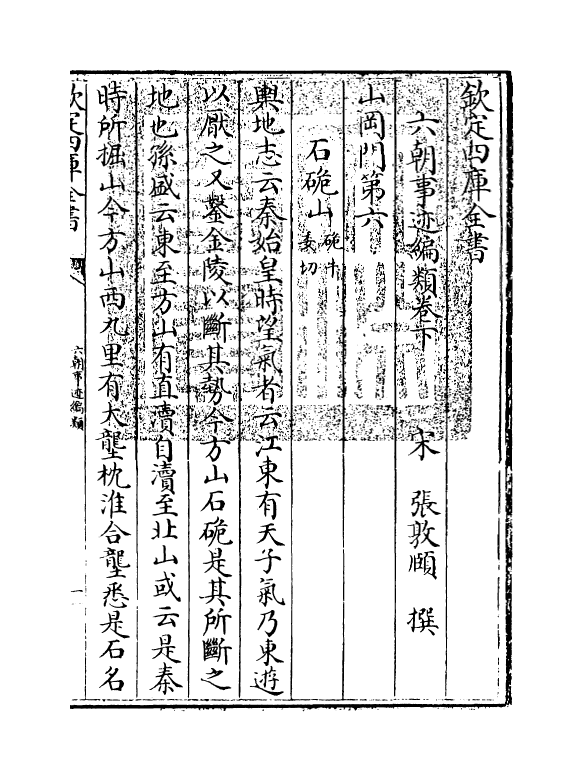 欽定四庫全書
六朝事迹編類卷下
宋 張敦頤 撰
山岡門第六
石硊山硊牛毁切
輿地志云秦始皇時望氣者云江東有天子氣乃東遊
以厭之又鑿金陵以斷其勢今方山石硊是其所斷之
地也孫盛云東至方山有直瀆自瀆至北山或云是秦
時所掘山今方山西九里有大壟枕淮合壟悉是石名
欽定四庫全書
六朝事迹編類